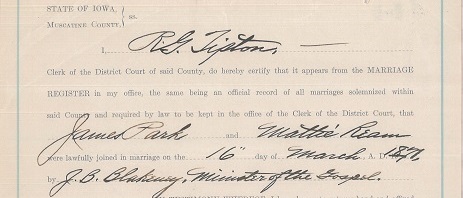 STATE OF IOWA,
MUSCATINE COUNTY, ss.
I, R.G. Tipton,
Clerk of the District Court of said County, do hereby certify that it appears from the MARRIAGE
REGISTER in my office, the same being an official record of all marriages solemnized within
said County and required by law to be kept in the office of the Clerk of the District Court, that
James Park and Mattie Ream
were lawfully joined in marriage on the 16" day of March, A. D.
by J. B. Blakeney, Minister of the Gospel.